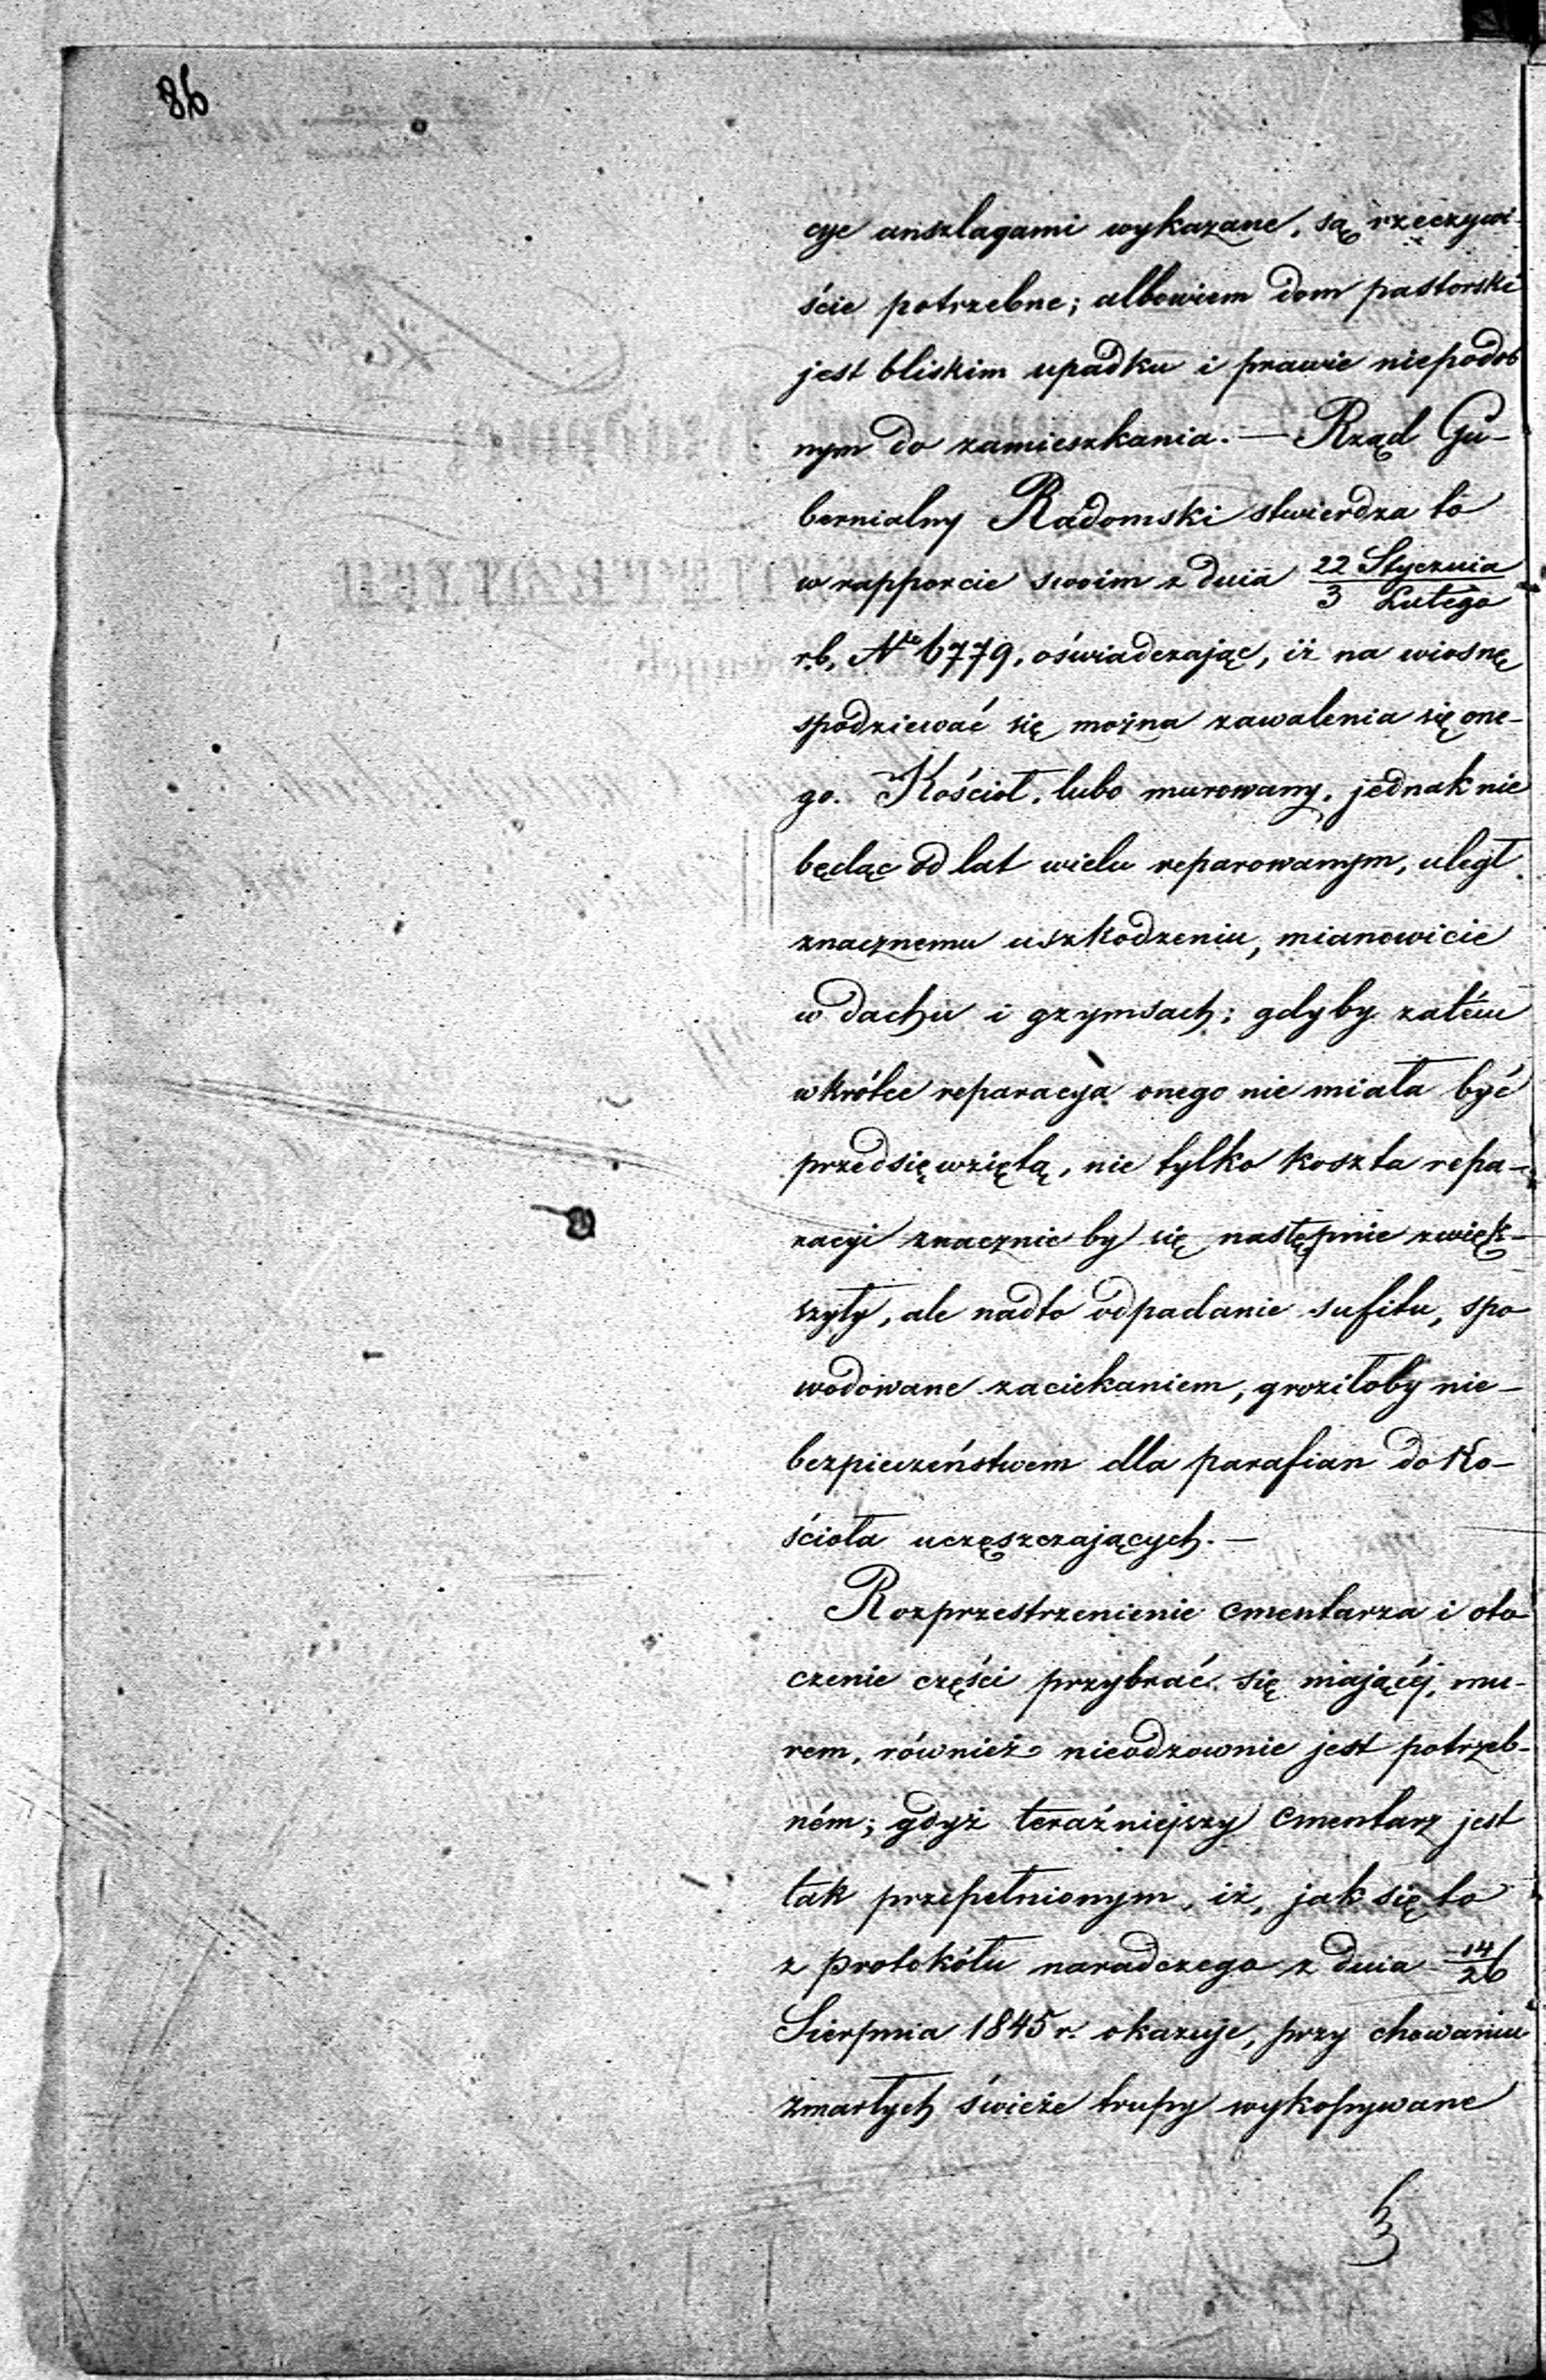 86
cye anszlagami wykazane, są rzeczywi-
ście potrzebne; albowiem dom pastorski
jest bliskim upadku i prawie niepodob
nym do zamieszkania. — Rząd Gu-
bernialny Radomski stwierdza to
w rapporcie swoim z dnia 22 Stycznia / 3 Lutego
r.b. No 6779, oświadczając, iż na wiosnę
spodziewać się można zawalenia się one-
go. Kościoł, lubo murowany, jednak nie
będąc od lat wielu reparowanym, uległ
znacznemu uszkodzeniu, mianowicie
w dachu i gzymsach; gdyby zatém
wkrótce reparacya onego nie miała być
przedsięwziętą, nie tylko koszta repa-
racyi znacznie by się następnie zwięk-
szyły, ale nadto odpadanie sufitu, spo
wodowane zaciekaniem, groziłoby nie-
bezpieczeństwem dla parafian do Ko-
ścioła uczęszczających. —
Rozprzestrzenienie cmentarza i oto
czenie części przybrać się mającéj, mu-
rem, również nieodzownie jest potrzeb-
ném; gdyż teraźniejszy cmentarz jest
tak przepełnionym, iż, jak się to
z protokółu naradczego z dnia 14/26
Sierpnia 1845 r. okazuje, przy chowaniu
zmarłych świeże trupy wykopywane